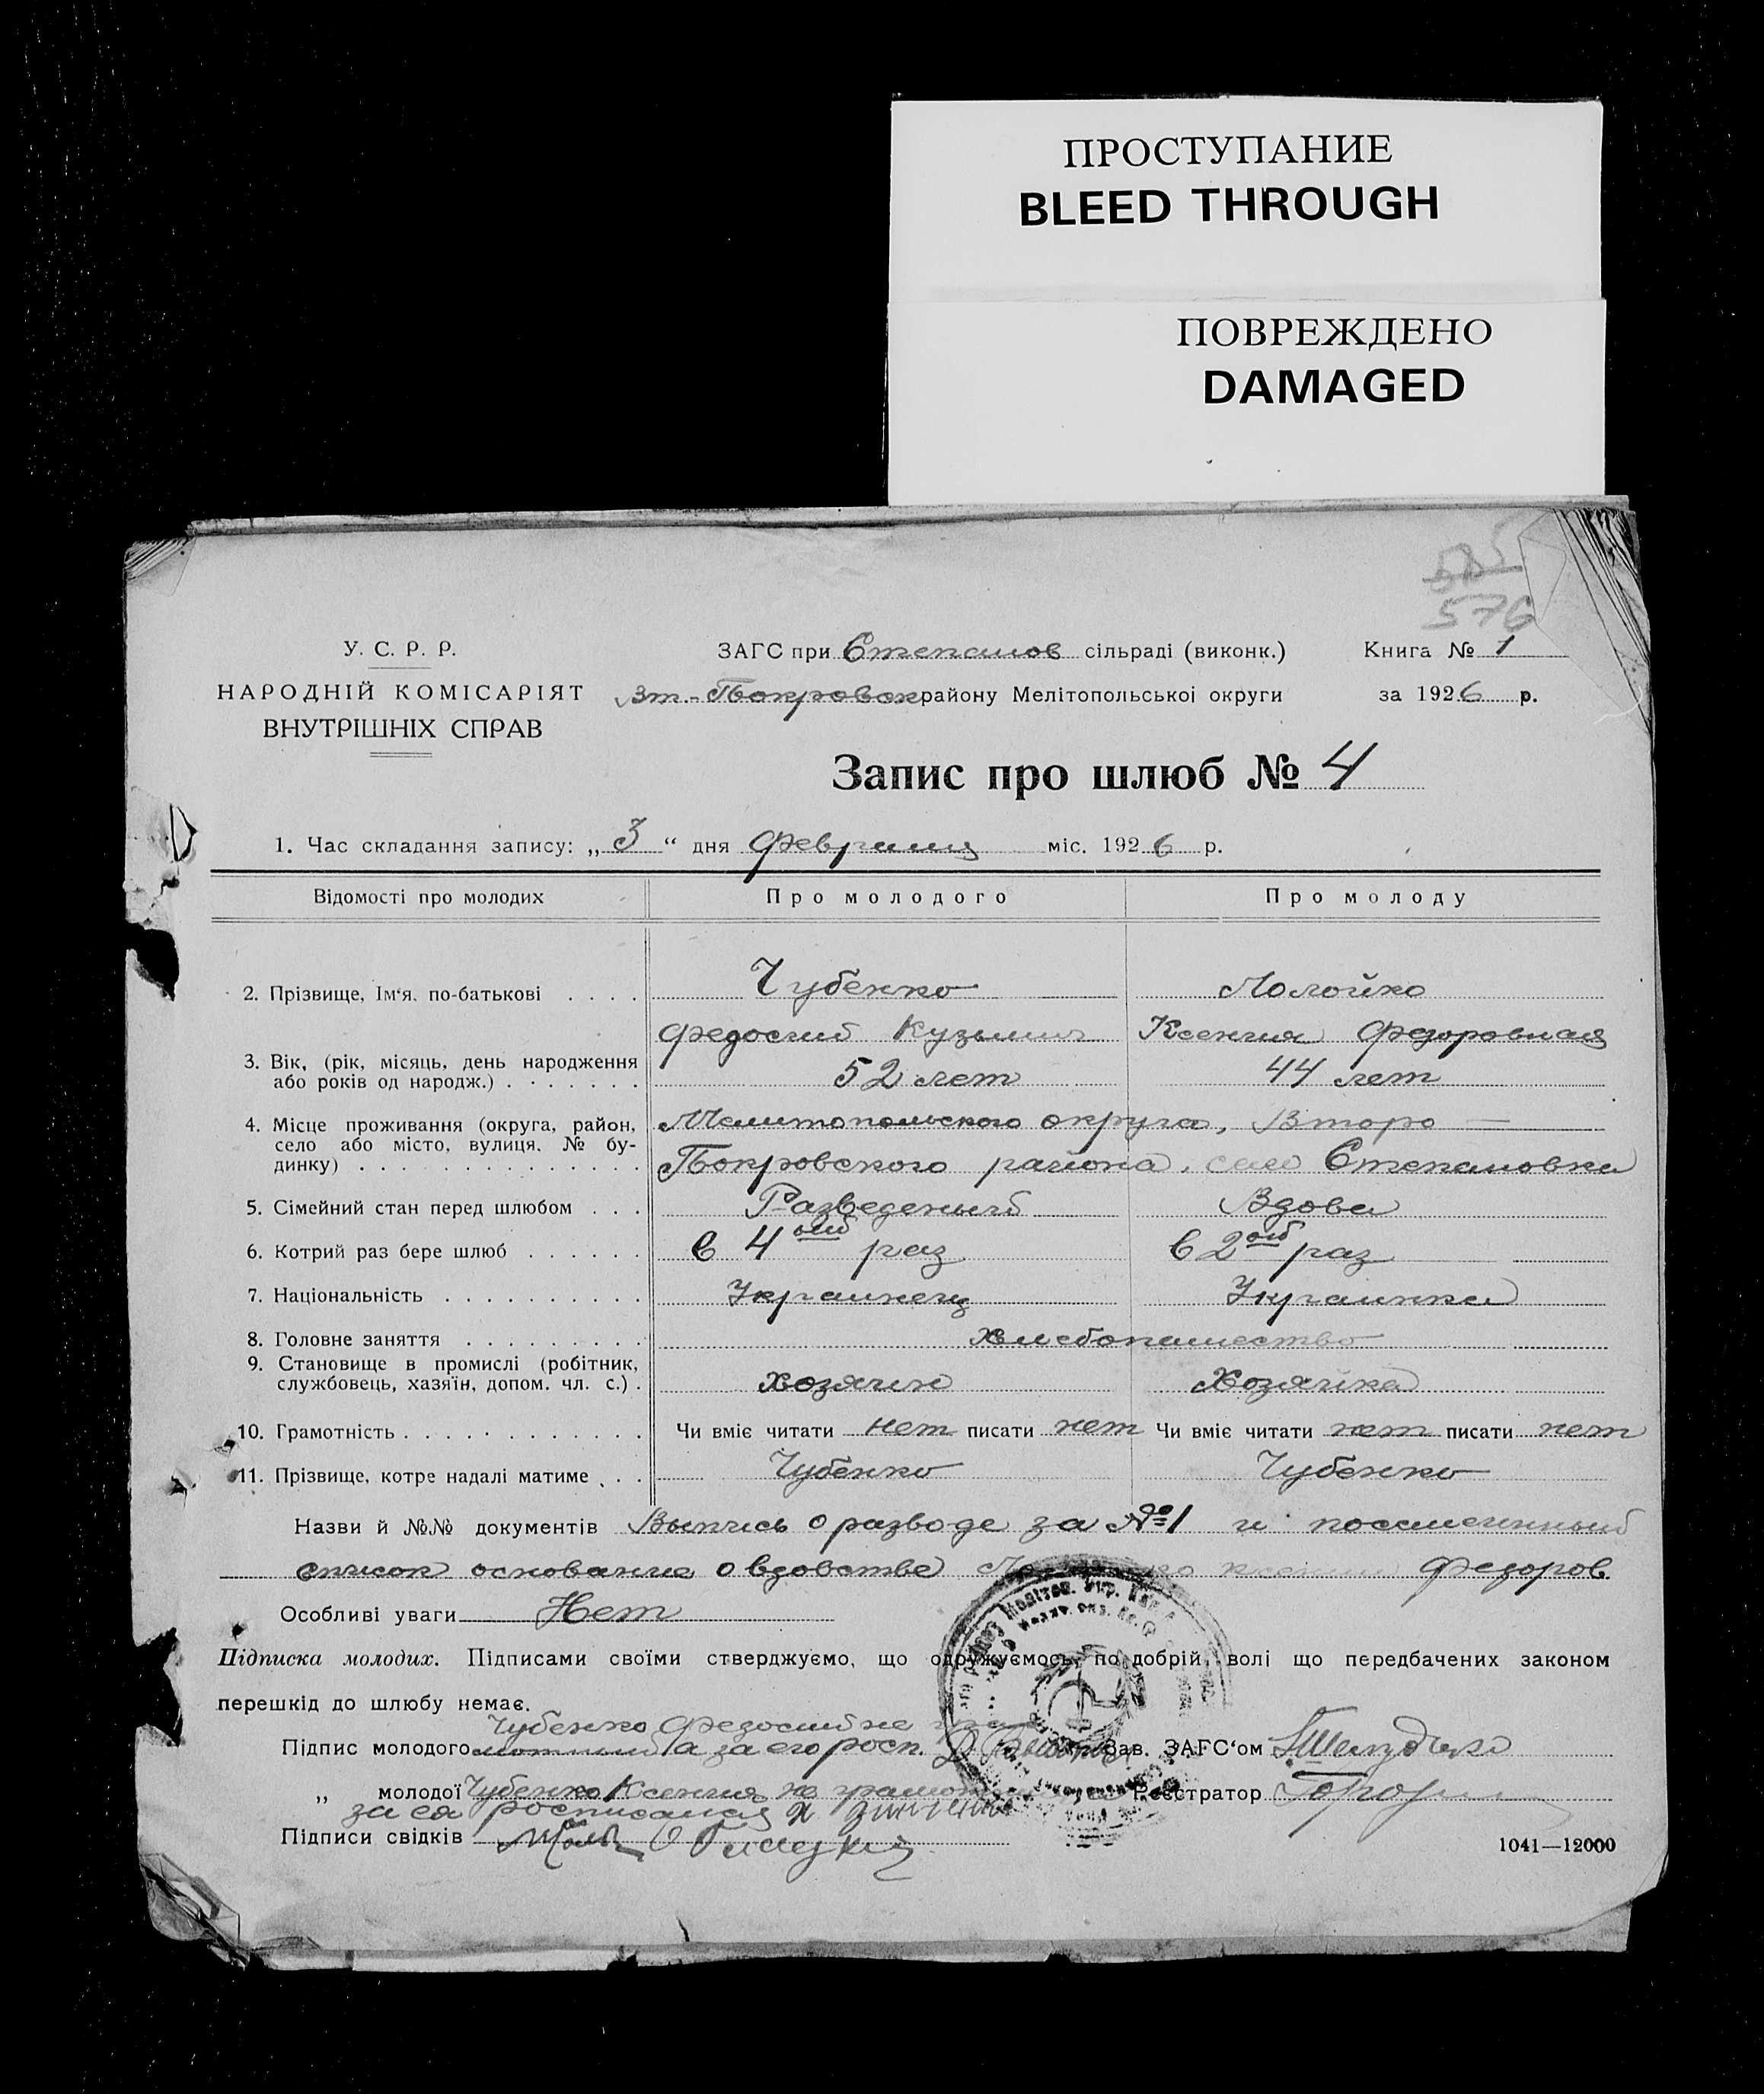 ПРОСТУПАНИЕ
BLEED THROUGH
ПОВРЕЖДЕНО
DAMAGED
585
576
У. С. Р. Р.
НАРОДНІЙ КОМІСАРІЯТ
ВНУТРІШНІХ СПРАВ
ЗАГС при Степанов сільраді (виконк.)
Вт.-Покровск району Мелітопольської округи
Книга № 1
за 1926 р.
Запис про шлюб № 4
1. Час складання запису: „ 3 “ дня февраля міс. 1926 р.
Відомості про молодих Про молодого Про молоду
2. Прізвище, Ім‘я, по-батькові . . . . Чубенко Молойко
Федосий Кузьмич Ксения Федоровная
3. Вік, (рік, місяць, день народження
або років од народж.) . . . . . . . 52 лет 44 лет
4. Місце проживання (округа, район, Мелитопольского округа, Второ —
село або місто, вулиця, № бу-
динку) . . . . . . . . . . . . . . Покровского района, село Степановка
5. Сімейний стан перед шлюбом . . . Разведеный Вдова
6. Котрий раз бере шлюб . . . . . . в 4ый раз в 2ой раз
7. Національність . . . . . . . . . . Украинец Украинка
8. Головне заняття . . . . . . . . . Хлебопашество
9. Становище в промислі (робітник,
службовець, хазяїн, допом. чл. с.) . хозяин Хозяйка
10. Грамотність . . . . . . . . . . . . Чи вміє читати нет писати нет Чи вміє читати нет писати нет
11. Прізвище, котре надалі матиме . . . Чубенко Чубенко
Назви й №№ документів Выпись о разводе за №1 и посемейный
список основание о вдовстве Федоров.
Особливі уваги Нет
Підписка молодих. Підписами своїми стверджуємо, що одружуємось по добрій волі що передбачених законом
перешкід до шлюбу немає.
Чубенко Федосий не
Підпис молодого а за его росп. Зав. ЗАГС‘ом
„ молодої Чубенко Ксения не Реєстратор
за ея росписался
Підписи свідків
1041—12000